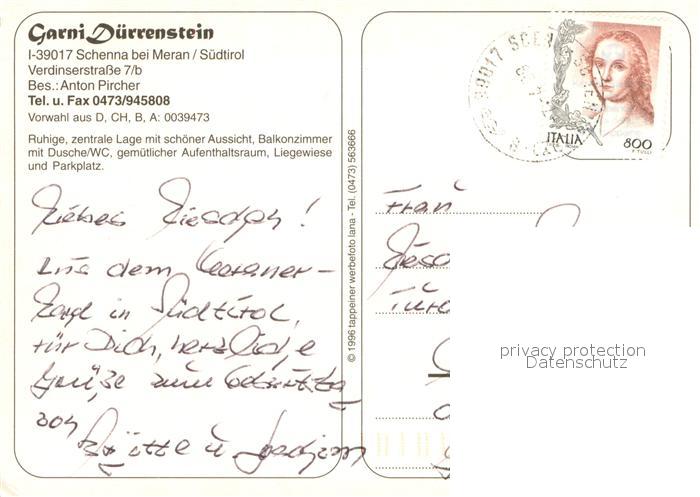 Garni Dürrenstein
I-39017 Schenna bei Meran / Südtirol
Verdinserstraße 7/b
Bes.: Anton Pircher
Tel. u. Fax 0473/945808
Vorwahl aus D, CH, B, A: 0039473
Ruhige, zentrale Lage mit schöner Aussicht, Balkonzimmer
mit Dusche/WC, gemütlicher Aufenthaltsraum, Liegewiese
und Parkplatz.
Liebes
Aus dem Meraner-
Land in Südtirol,
für Dich, herzliche
Grüße zum Geburtstag
von
u.
© 1996 tappeiner werbefoto lana - Tel. (0473) 563666
39017
ITALIA
800
Frau
privacy protection
Datenschutz